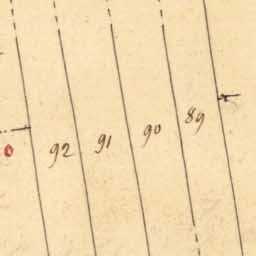 0 92 91 90 89